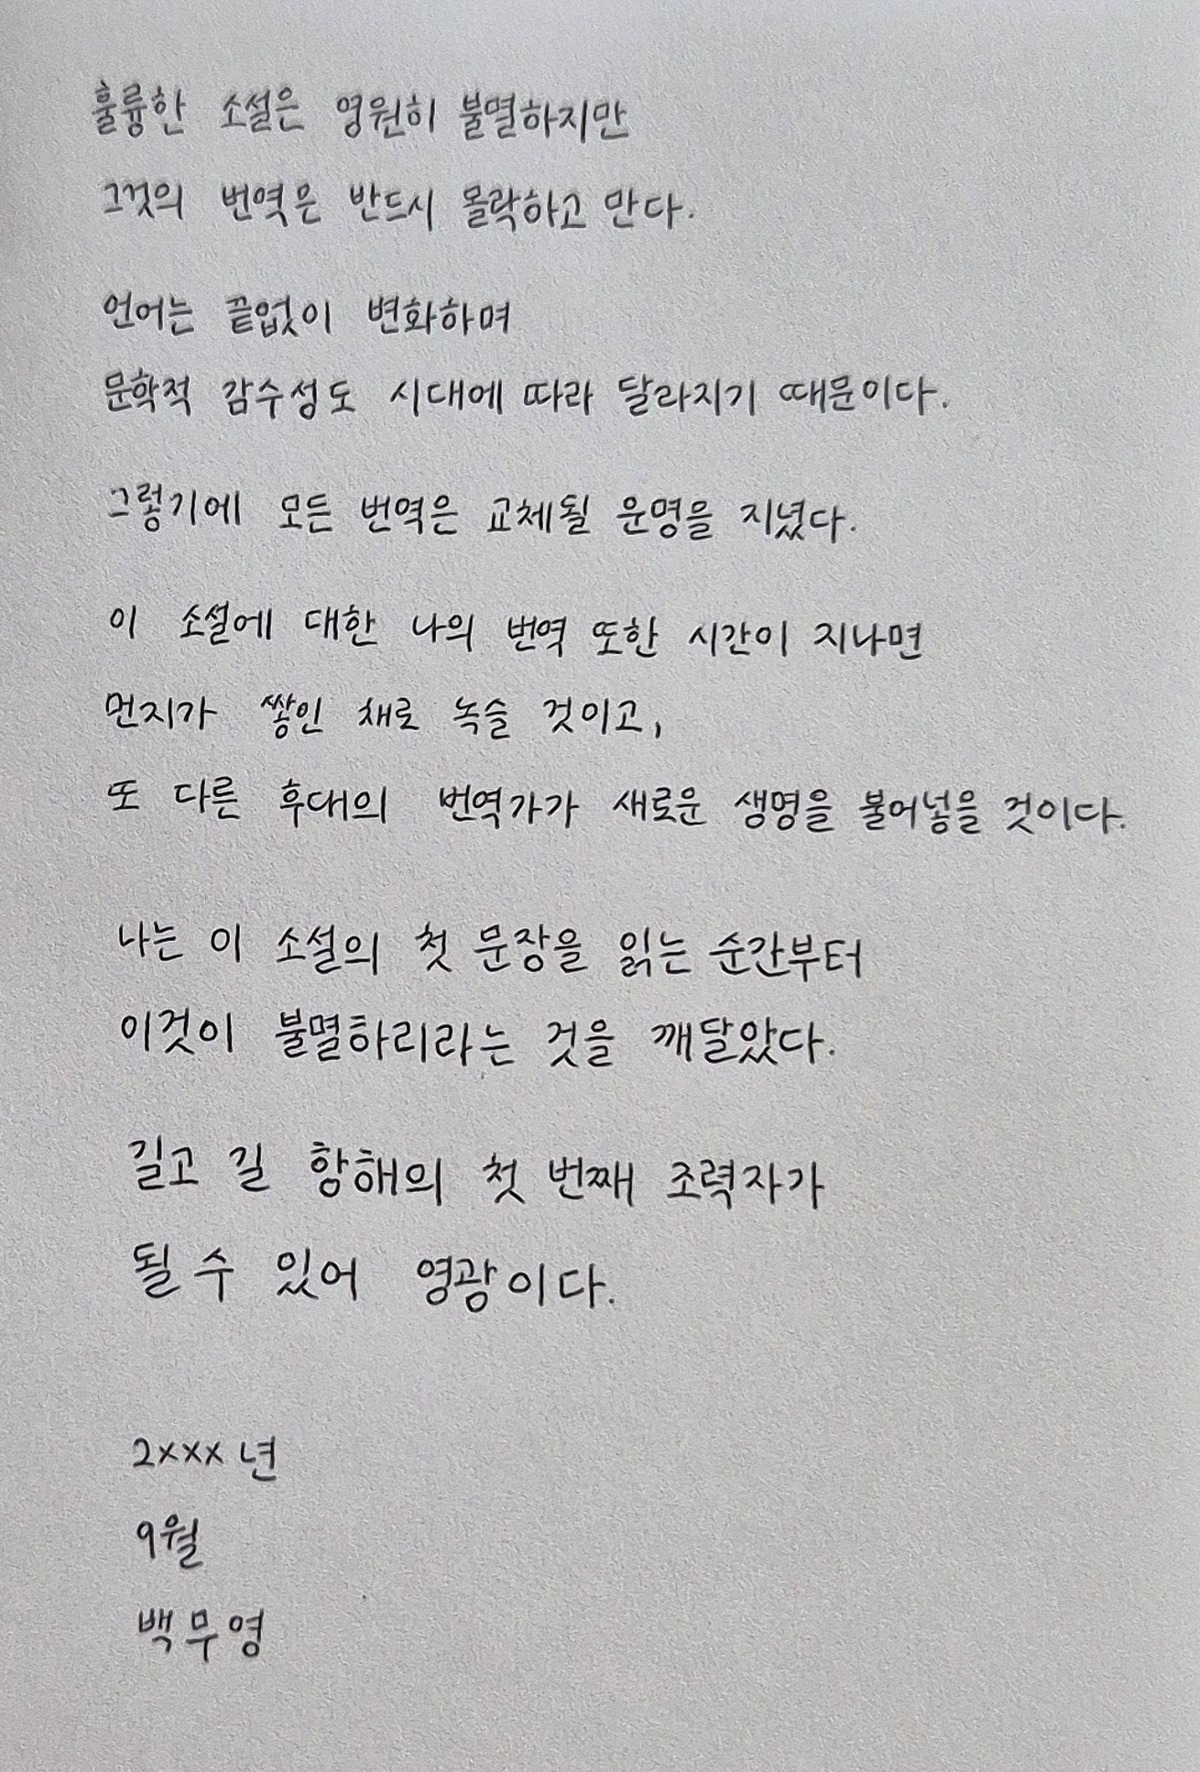 훌륭한 소설은 영원히 불멸하지만
그것의 번역은 반드시 몰락하고 만다.
언어는 끝없이 변화하며
문학적 감수성도 시대에 따라 달라지기 때문이다.
그렇기에 모든 번역은 교체될 운명을 지녔다.
이 소설에 대한 나의 번역 또한 시간이 지나면
먼지가 쌓인 채로 녹슬 것이고,
또 다른 후대의 번역가가 새로운 생명을 불어넣을 것이다.
나는 이 소설의 첫 문장을 읽는 순간부터
이것이 불멸하리라는 것을 깨달았다.
길고 긴 항해의 첫 번째 조력자가
될 수 있어 영광이다.
2xxx 년
9월
백무영